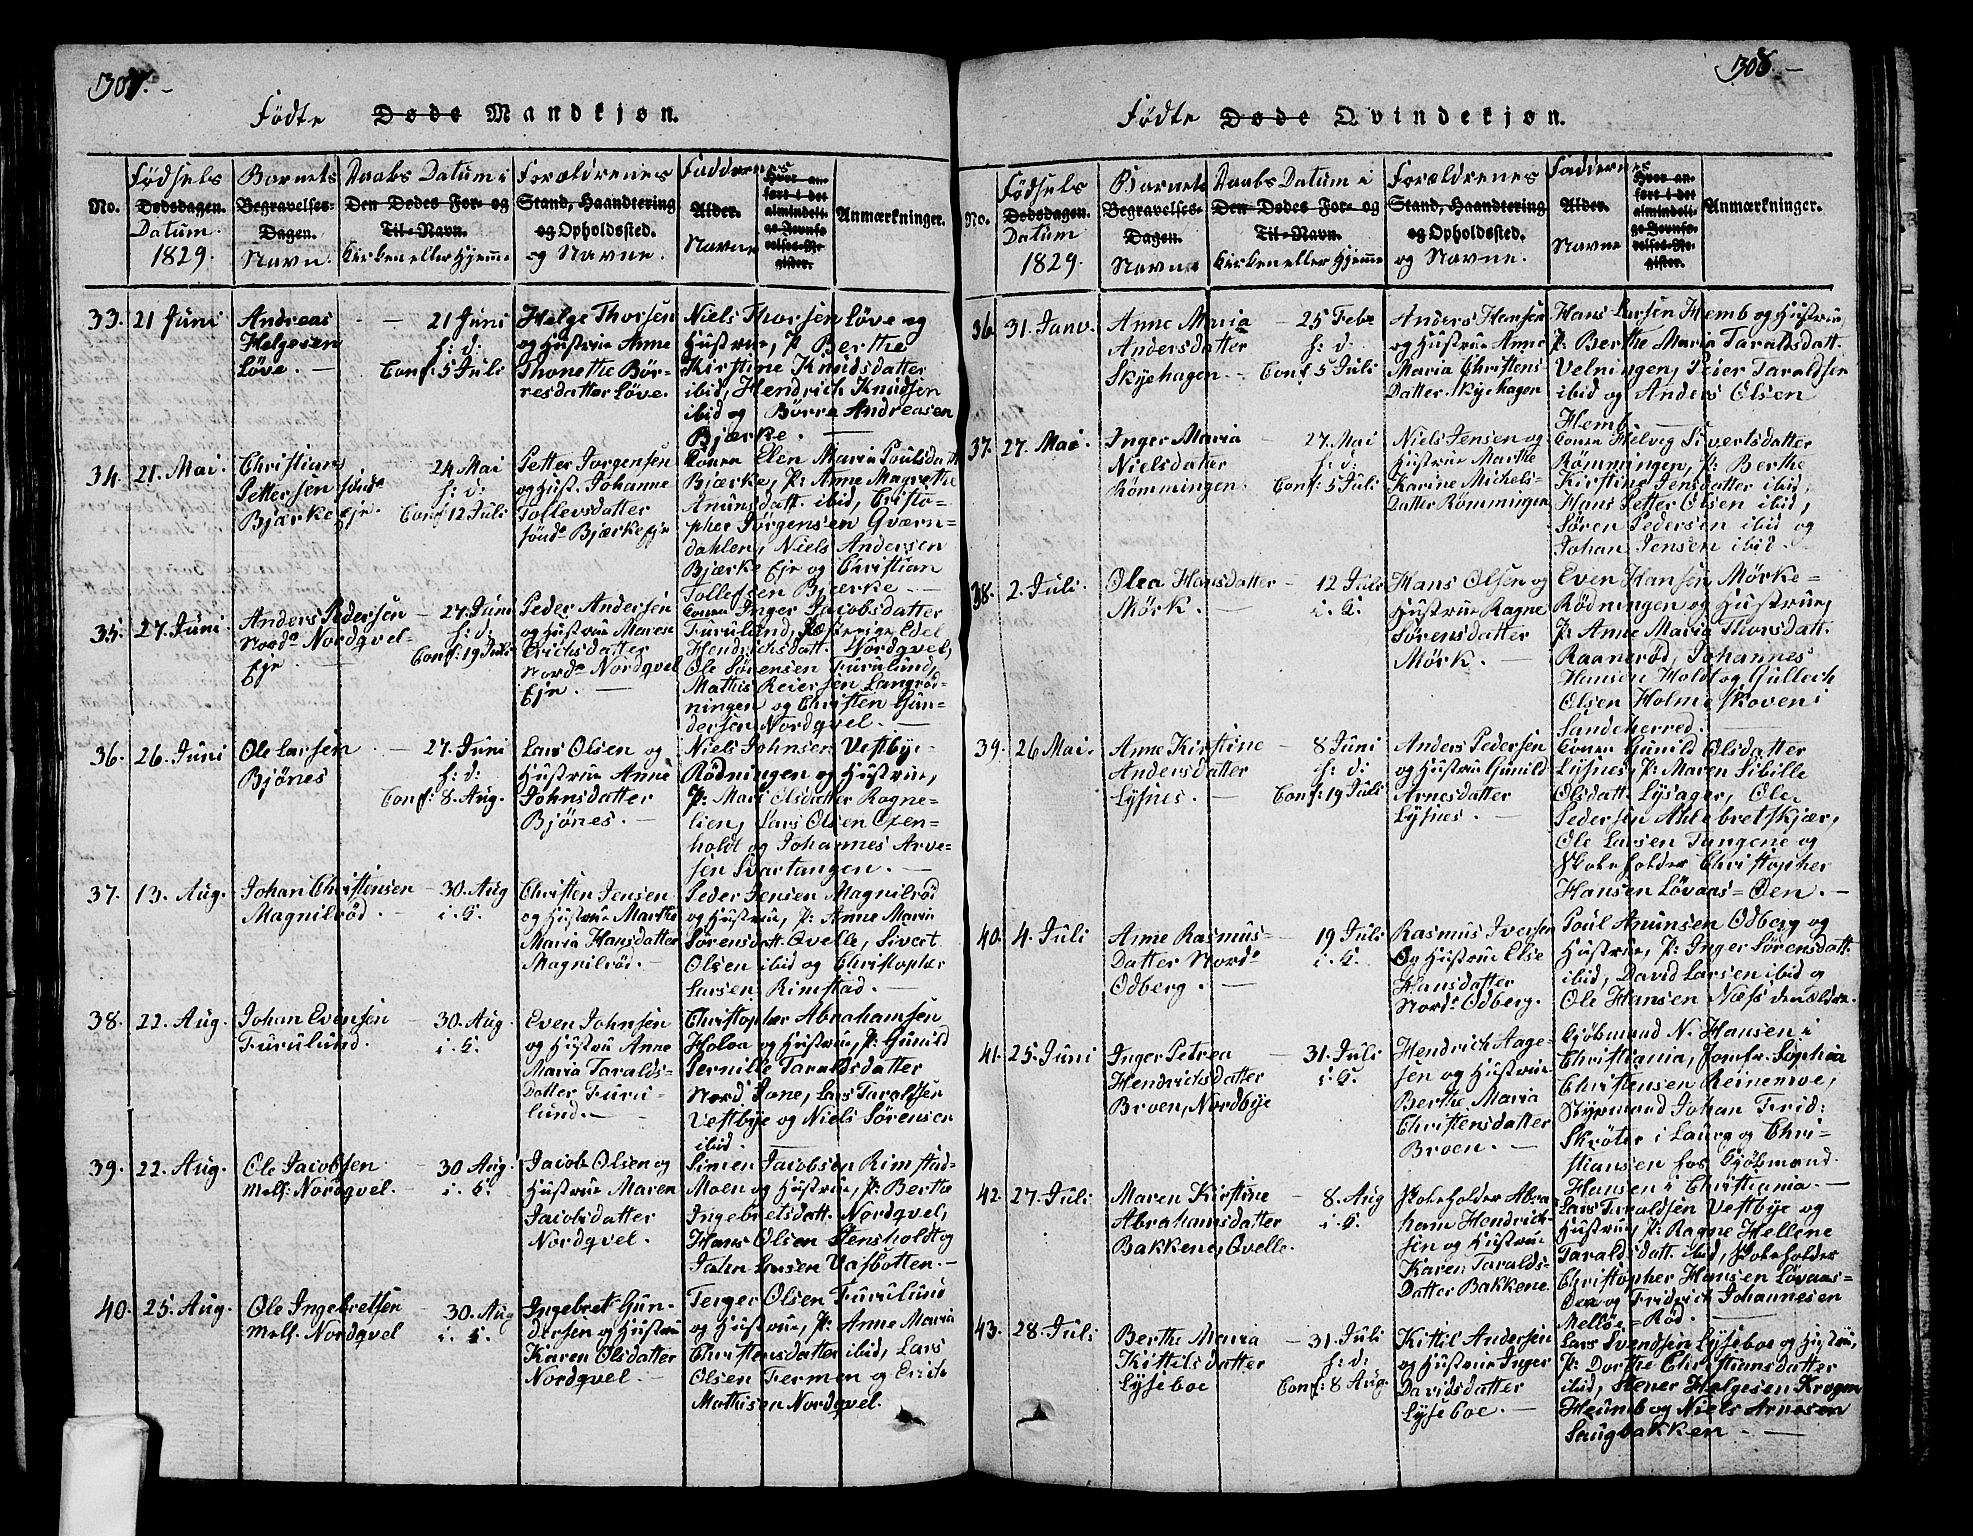 307.
Födte Døde Mandkjøn.
No.
Födsels Dødsdagen. Datum 1829.
Barnets Begravelses-Dagen. Navn.
Daabs Datum i Den Dødes For- og Til-Navn. Kirken eller Hjemme
Forældrenes Stand, Haandtering og Opholdssted. og Navne.
Faddernes Alder. Navne
Hvor anført i det almindelige Jevnførelses-Register.
Anmærkninger.
33. 21 Juni
Andreas
Helgesen
Löve. —
— 21 Juni
h: d:
Conf: 5 Juli
Helge Thorsen
og Hustrue Anne
Thonette Bör-
resdatter Löve.
Niels Thorsen Löve og
Hustrue, P: Berthe
Kirstine Knudsdatter
ibid, Hendrich Knudsen
ibid og Börre Andreasen
Bjærke. —
34. 21. Mai.
Christian
Pettersen sönd:
Bjærke Eje.
24 Mai
h: d:
Conf: 12 Juli
Petter Jorgensen
og Hust. Johanne
Tollevsdatter
sönd: Bjærke Eje
Conen Elen Maria Poulsdatt
Bjærke, P: Anne Magrethe
Amunsdatt. ibid, Christo-
pher Jörgensen Gværn-
dahlen, Niels Andersen
Bjærke Eje og Christian
Tollefsen Bjærke —
35. 27. Juni
Anders Pedersen
Nord: Nordqvel-
Eje
— 27 Juni
h: d:
Conf: 19 Juli
Peder Andersen
og Hustrue Maren
Erichsdatter
Nord: Nordqvel
Eje. —
Conen Inger Jacobsdatter
Furulund, P: Edel
Hendrichsdatt. Nordqvel,
Ole Sörensen Furulund,
Mathis Reiersen Langröd-
ningen og Christen Gun-
dersen Nordqvel. —
36. 26. Juni
Ole Larsen
Bjönes
— 27. Juni
h: d:
Conf: 8. Aug.
Lars Olsen og
Hustrue Anne
Johnsdatter
Bjönes. —
Niels Johnsen Vestbye-
Rödningen og Hustrue,
P: Mari Olsdatter Ragne-
lien, Lars Olsen Oxen-
holdt og Johannes Arve-
sen Svartangen. —
37. 13. Aug.
Johan Christensen
Magnilröd. —
— 30. Aug
i. K.
Christen Jensen
og Hustrue Marthe
Maria Hansdatter
Magnilröd. —
Peder Jensen Magnilröd
og Hustrue, P: Anne Maria
Sörensdatt. Qvelle, Sivert
Olsen ibid og Christopher
Larsen Rimstad. —
38. 22. Aug.
Johan Evensen
Furulund.
— 30. Aug.
i. K.
Even Johnsen
og Hustrue Anne
Maria Taralds-
datter Furu-
lund. —
Christopher Abrahamsen
Holva og Hustrue, P: Gunild
Pernille Taraldsdatter
Nord Jone, Lars Taraldsen
Vestbye og Niels Sörensen
ibid. —
39. 22. Aug.
Ole Jacobsen
mell: Nordqvel. —
— 30 Aug.
i. K.
Jacob Olsen og
Hustrue Maren
Jacobsdatter
Nordqvel. —
Simen Jacobsen Rimstad-
Moen og Hustrue, P: Berthe
Ingebretsdatt. Nordqvel,
Hans Olsen Stensholdt og
John Larsen Vasbotten. —
40. 25. Aug.
Ole Ingebretsen
mell. Nordqvel
— 30. Aug
i. K.
Ingebret Gun-
dersen og Hustrue
Karen Olsdatter
Nordqvel. —
Terger Olsen Furulund
og Hustrue, P: Anne Maria
Christensdatter ibid, Lars
Olsen Fermen og Erich
Mathisen Nordqvel.
308. —
Födte Døde Qvindekjøn.
No.
Födsels Dødsdagen. Datum 1829.
Barnets Begravelses-Dagen. Navne
Daabs Datum i Den Dødes For- og Til-Navn. Kirken eller Hjemme
Forældrenes Stand, Haandtering og Opholdssted. og Navne.
Faddernes Alder. Navne
Hvor anført i det almindelige Jevnførelses-Register.
Anmærkninger.
36. 31. Janv.
Anne Maria
Andersdatter
Skyehagen —
— 25 Febr
h: d:
Conf: 5 Juli
Anders Hansen
og Hustrue Anne
Maria Christens
Datter Skyehagen
Hans Larsen Hemb og Hustrue,
P: Berthe Maria Taraldsdatt.
Velningen, Peier Taraldsen
ibid og Anders Olsen
Hemb —
37. 27. Mai
Inger Maria
Nielsdatter
Römmingen.
— 27. Mai
h: d:
Conf: 5 Juli
Niels Jensen og
Hustrue Marthe
Karine Michels-
Datter Römmingen
Conen Helvig Sivertsdatter
Römmingen, P: Berthe
Kirstine Jensdatter ibid,
Hans Petter Olsen ibid,
Sören Pedersen ibid og
Johan Jensen ibid. —
38. 2. Juli.
Olea Hansdatter
Mörk. —
— 12 Juli
i. K.
Hans Olsen og
Hustrue Ragne
Sörensdatter
Mörk. —
Even Hansen Mörke-
Rödningen og Hustrue,
P: Anne Maria Thorsdatt.
Raaneröd, Johannes
Hansen Holdt og Gullech
Olsen Holmeskoven i
Sandeherred. —
39. 26 Mai.
Anne Kirstine
Andersdatter
Lysnes. —
— 8 Juni
h: d:
Conf: 19 Juli
Anders Pedersen
og Hustrue Gunild
Arnesdatter
Lysnes. —
Conen Gunild Olsdatter
Lysnes, P: Maren Sibille
Olsdatt. Lysager, Ole
Pedersen Aklebretskjær,
Ole Larsen Tangene og
Skoleholder Christopher
Hansen Lövaas-Öen. —
40. 4. Juli
Anne Rasmus-
Datter Nord:
Odberg. —
— 19 Juli
i. K.
Rasmus Iversen
og Hustrue Else
Hansdatter
Nord: Odberg.
Poul Amunsen Odberg og
Hustrue, P: Inger Sörensdatt.
ibid, David Larsen ibid og
Ole Hansen Næss den ældre.
41. 25. Juni
Inger Petrea
Hendrichsdatter
Broen, Nordbye
— 31. Juli
i. K.
Hendrich Aage-
sen og Hustrue
Berthe Maria
Christensdatter
Broen. —
Kjöbmand N. Hansen i
Christiania, Jomfr. Sophia
Christensen Reinemoe,
Styrmand Johan Frid:
Skröter i Laurg og Chri-
stiansen hos Kjöbmand
Hansen i Christiania. —
42. 27. Juli
Maren Kirstine
Abrahamsdatter
Bakkene, Qvelle.
— 8. Aug
i. K.
Skoleholder Abra
ham Hendrich-
sen og Hustrue
Karen Taralds-
Datter Bakkene.
Lars Taraldsen Vestbye og
Hustrue, P: Ragne Hellene
Taraldsdatt. ibid, Skoleholder
Christopher Hansen Lövaas-
Öen og Fridrich Johannesen
Mellöe-Röd. —
43. 28. Juli.
Berthe Maria
Kittelsdatter
Lyseboe
— 31. Juli
h: d:
Conf: 8 Aug.
Kittil Andersen
og Hustrue Inger
Davidsdatter
Lyseboe. —
Lars Svendsen Lyseboe og Hustrue,
P: Dorthe Christiansdatter
ibid, Stener Helgesen Kragen
Heumb og Niels Arnesen
Saugbakken —